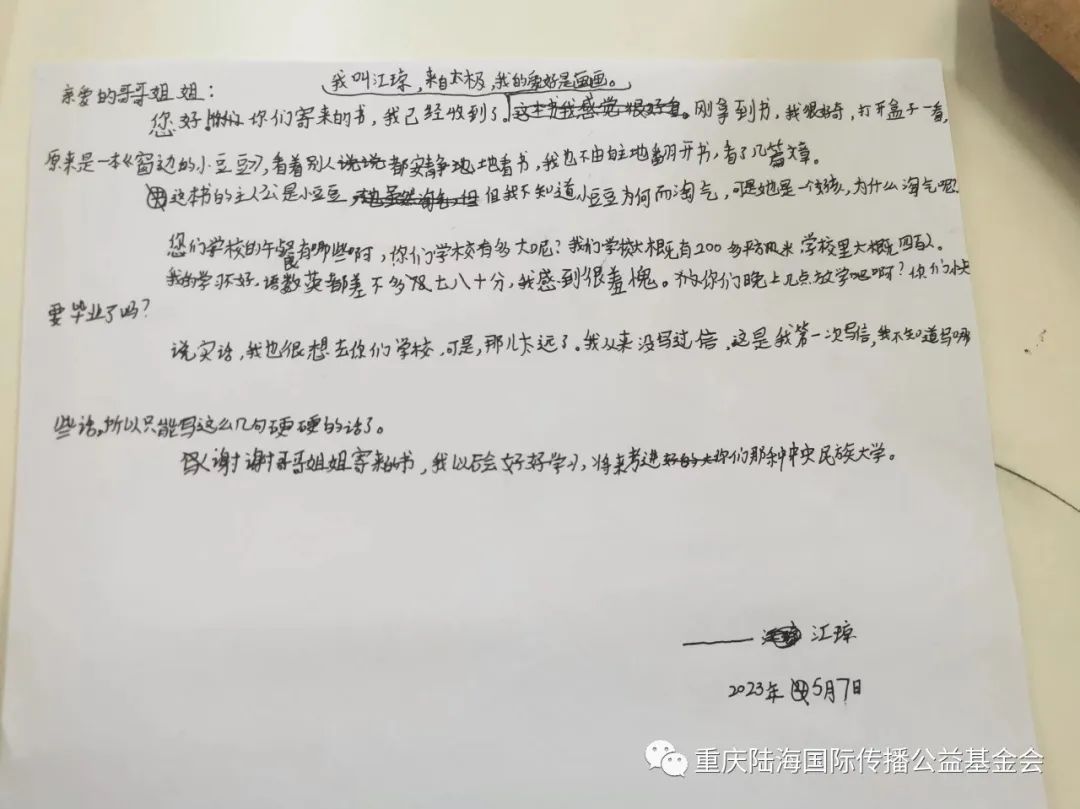 我叫江琼，来自太极，我的爱好是画画。
亲爱的哥哥姐姐：
您好！你们寄来的书，我已经收到了。这本书我感觉很好看。刚拿到书，我很好奇，打开盒子一看，
原来是一本《窗边的小豆豆》，看着别人说说都安静地地看书，我也不由自主地翻开书，看了几篇文章。
这本书的主人公是小豆豆，她虽然淘气，但 但我不知道小豆豆为何而淘气，可是她是一个孩，为什么淘气呢
您们学校的午餐有哪些啊，你们学校有多大呢？我们学校大概有200多平方米 学校里大概四百人。
我的学习不好，语数英都差不多及七八十分，我感到很羞愧。你们晚上几点放学吧啊？你们
要毕业了吗？
说实话，我也很想去你们学校，可是，那儿太远了。我从来没写过信，这是我第一次写信，我不知道写哪
些话，所以只能写这么几句硬硬的话了。
谢谢哥哥姐姐寄来的书，我以后会好好学习，将来考进好的大你们那种中央民族大学。
—— 江琼
2023年5月7日
重庆陆海国际传播公益基金会